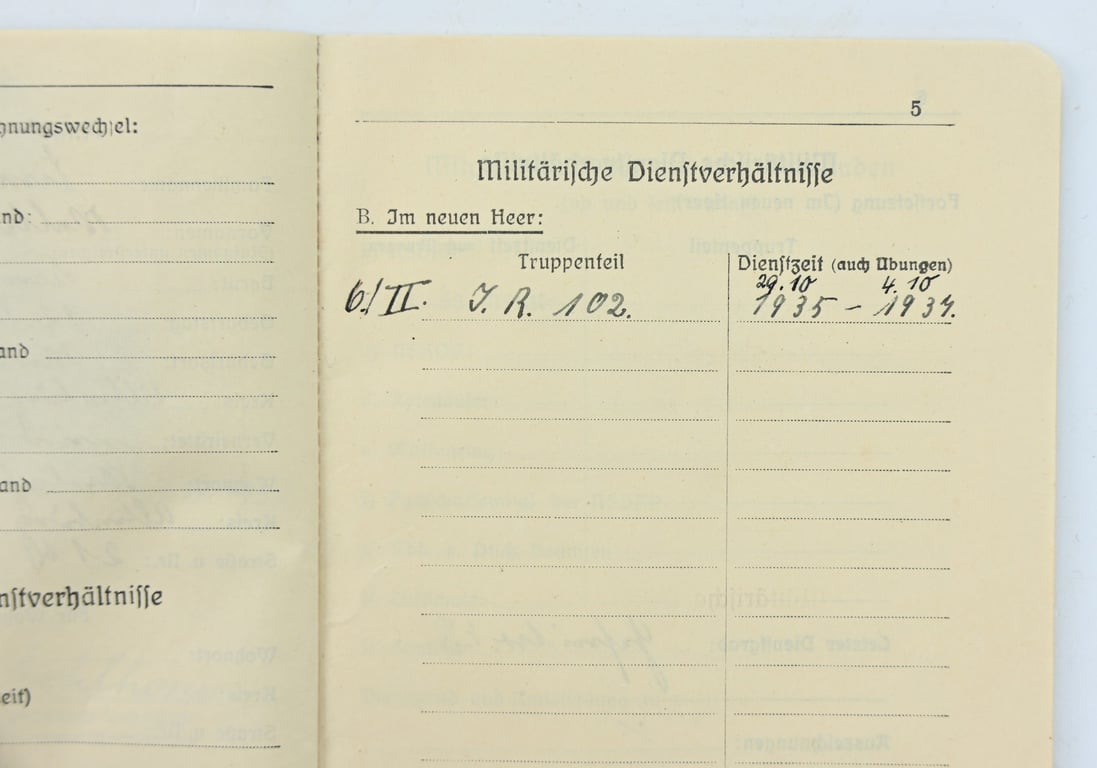 hnungswechsel:
nd:
and
and
nstverhältnisse
eit)
5
Militärische Dienstverhältnisse
B. Im neuen Heer:
Truppenteil Dienstzeit (auch Übungen)
29.10 4.10
6./II. I. R. 102. 1935 – 1937.
Letzter Dienstgrad: